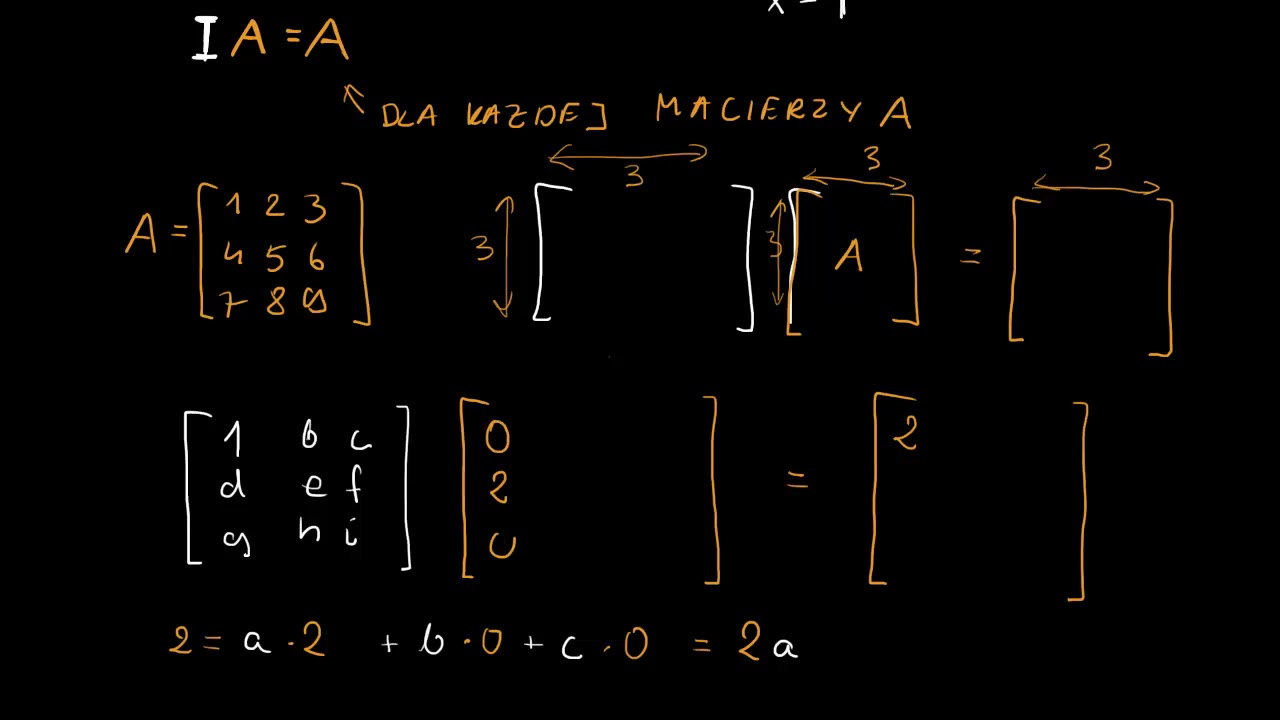 x = 1
I A = A
DLA KAZDEJ MACIERZY A
3 3 3
A = [1 2 3
4 5 6
7 8 9]
3 [ ] 3 [A] = [ ]
[1 b c
d e f
g h i] [0
2
0] = [2 ]
2 = a · 2 + b · 0 + c · 0 = 2a